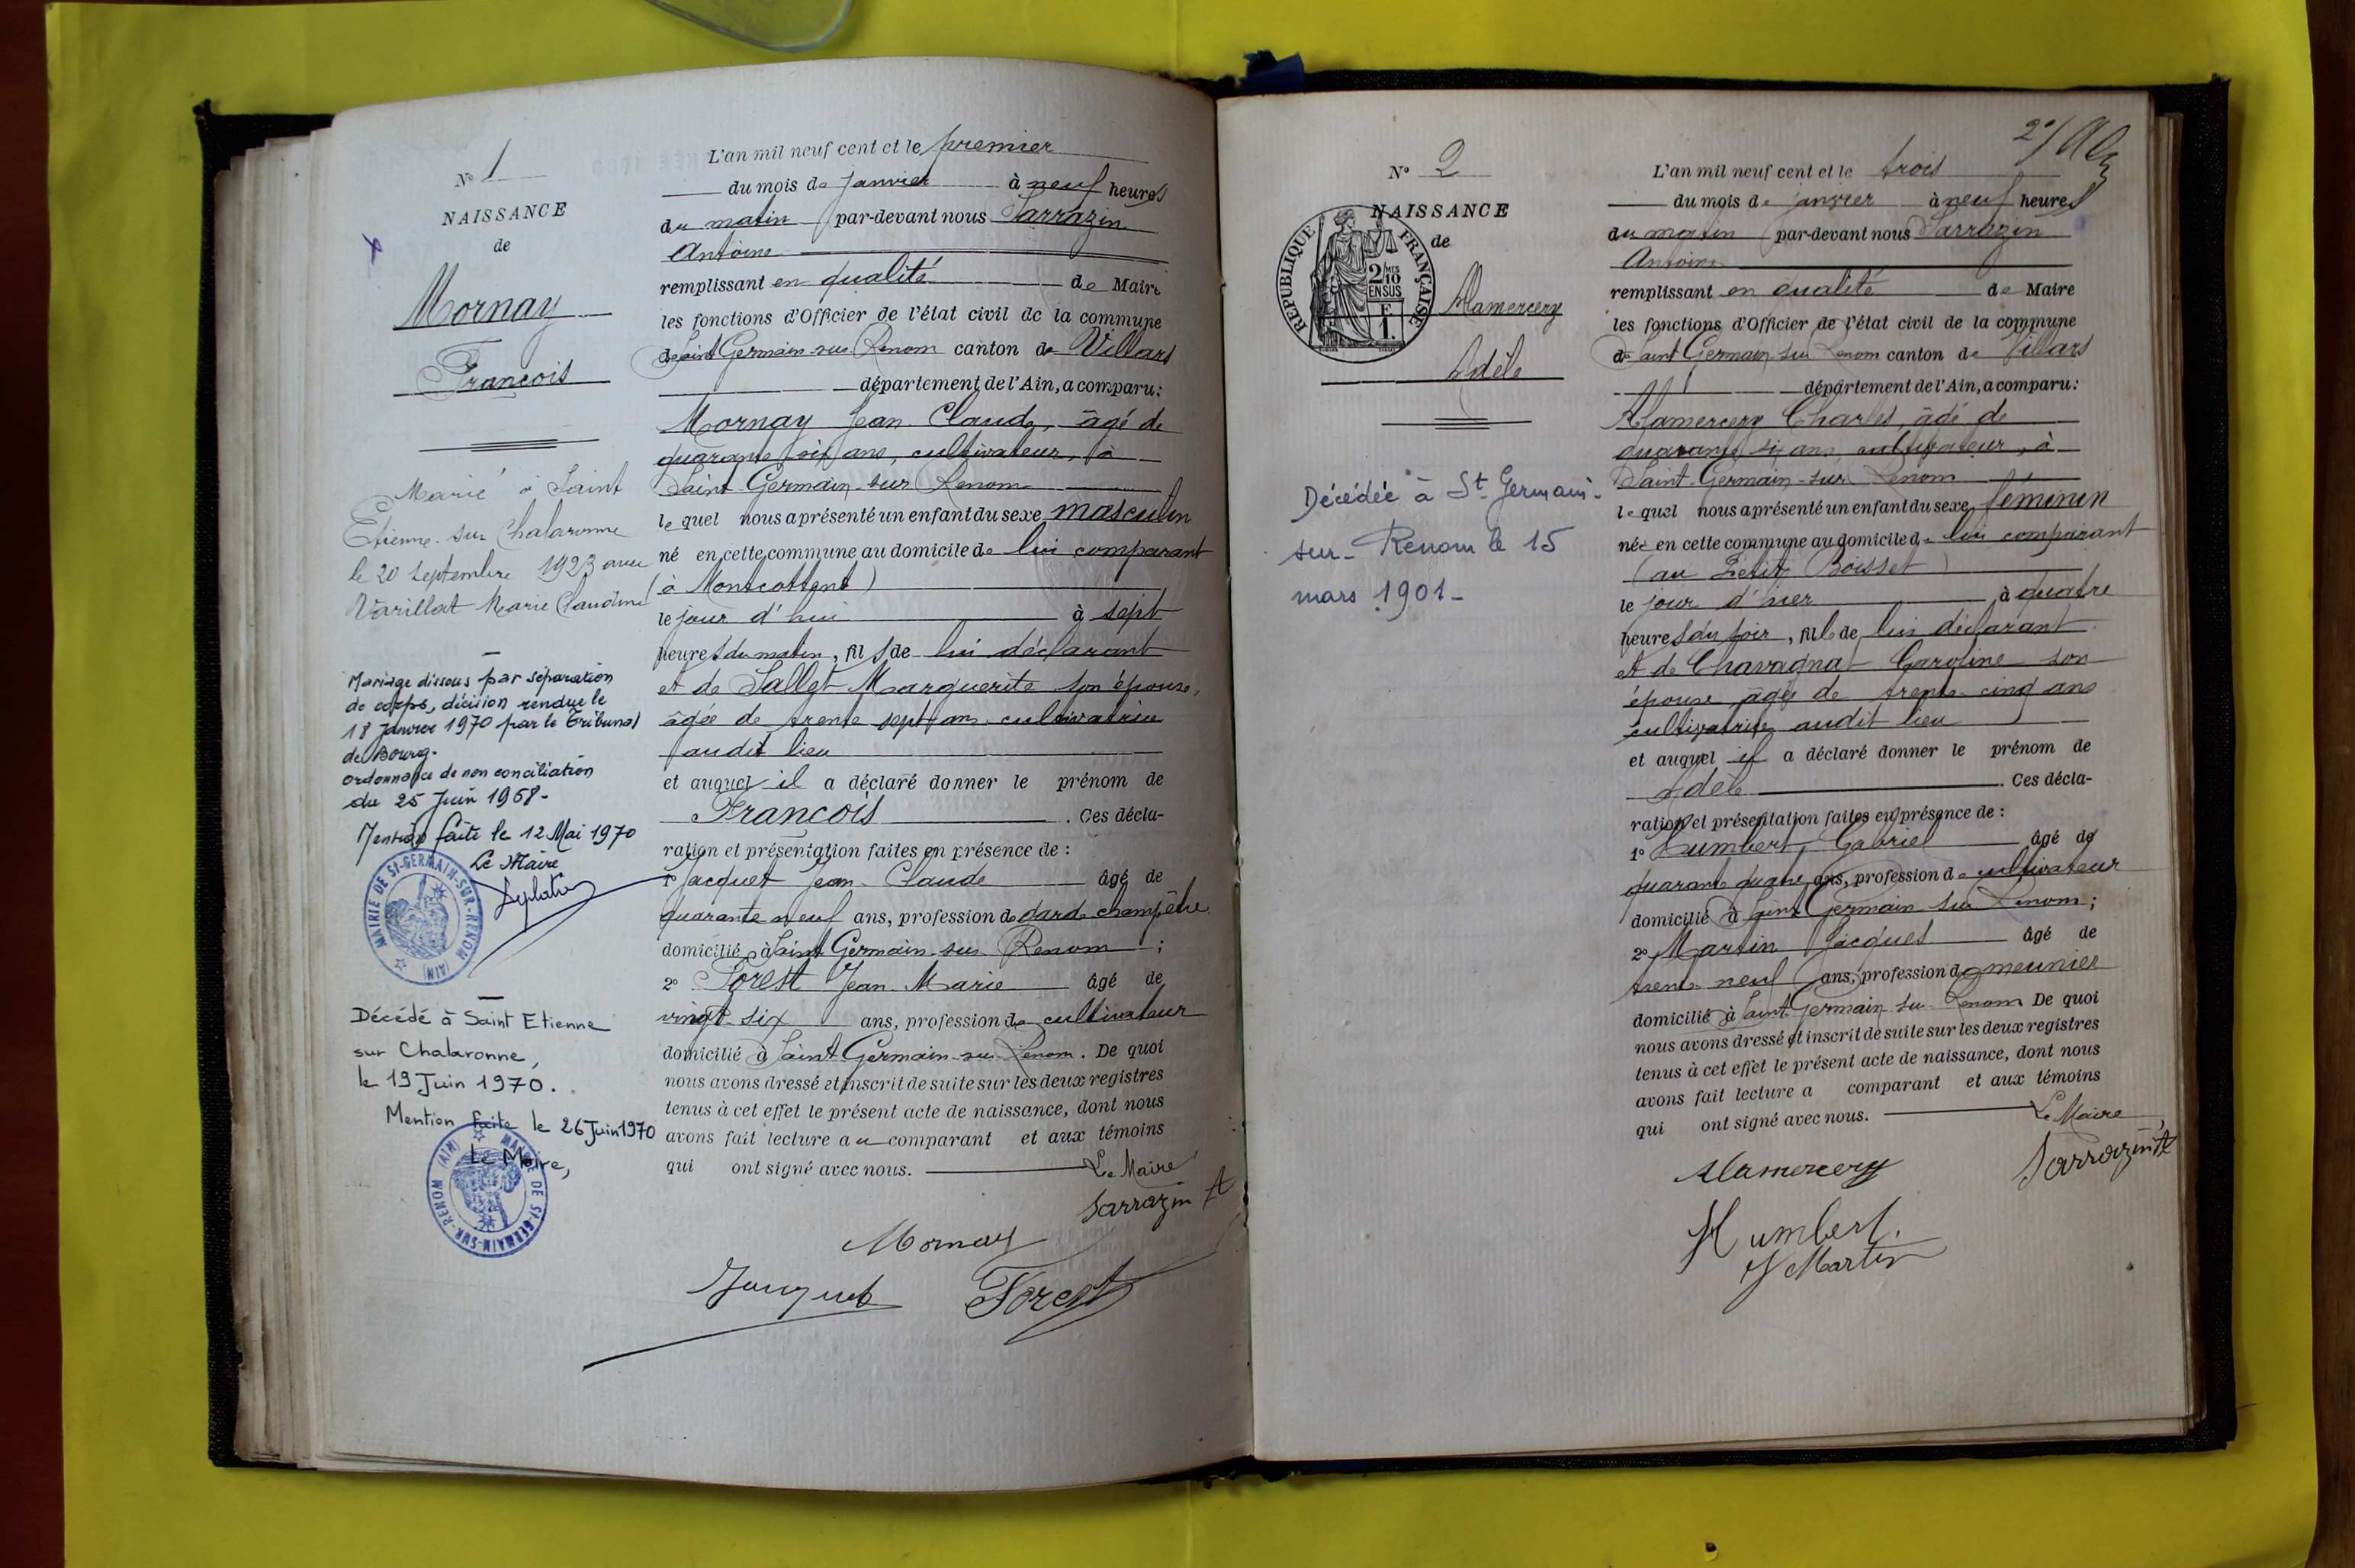 N° 1
NAISSANCE
de
Mornay
François
Marié à Saint
Etienne-sur Chalaronne
le 20 septembre 1923 avec
Varillat Marie Claudine
Mariage dissous par séparation
de corps, décision rendue le
18 Janvier 1970 par le Tribunal
de Bourg.
Ordonnance de non conciliation
du 25 Juin 1968-
Mention faite le 12 Mai 1970
Le Maire
MAIRIE DE ST-GERMAIN-SUR-RENOM (AIN)
Décédé à Saint Etienne
sur Chalaronne,
le 19 Juin 1970.
Mention faite le 26 Juin 1970
Le Maire,
MAIRIE DE ST-GERMAIN-SUR-RENOM (AIN)
L'an mil neuf cent et le premier
du mois de janvier à neuf heures
du matin par-devant nous Sarrazin
Antoine
remplissant en qualité de Maire
les fonctions d'Officier de l'état civil de la commune
de Saint Germain-sur Renom canton de Villars
département de l'Ain, a comparu:
Mornay Jean Claude, âgé de
quarante six ans, cultivateur, à
Saint-Germain-sur Renom
le quel nous a présenté un enfant du sexe masculin
né en cette commune au domicile de lui comparant
(à Montcottent)
le jour d'hui à sept
heures du matin, fils de lui déclarant
et de Sallet Marguerite son épouse,
âgée de trente sept ans cultivatrice
audit lieu
et auquel il a déclaré donner le prénom de
François. Ces décla-
ration et présentation faites en présence de:
1° Jacquet Jean-Claude âgé de
quarante neuf ans, profession de garde champêtre
domicilié à Saint Germain-sur Renom;
2° Forest Jean Marie âgé de
vingt-six ans, profession de cultivateur
domicilié à Saint-Germain-sur Renom. De quoi
nous avons dressé et inscrit de suite sur les deux registres
tenus à cet effet le présent acte de naissance, dont nous
avons fait lecture au comparant et aux témoins
qui ont signé avec nous. Le Maire
Sarrazin A
Mornay
Jacquet Forest
N° 2
NAISSANCE
de
RÉPUBLIQUE FRANÇAISE
2/10 EN SUS
1 F.
Alamercery
Adèle
Décédée à St Germain-
sur-Renom le 15
mars 1901-
L'an mil neuf cent et le trois
du mois de janvier à neuf heures
du matin par-devant nous Sarrazin
Antoine
remplissant en qualité de Maire
les fonctions d'Officier de l'état civil de la commune
de Saint Germain sur Renom canton de Villars
département de l'Ain, a comparu:
Alamercery Charles, âgé de
quarante six ans, cultivateur, à
Saint-Germain-sur Renom
le quel nous a présenté un enfant du sexe féminin
née en cette commune au domicile de lui comparant
(au Petit Boisset)
le jour d'hier à quatre
heures du soir, fille de lui déclarant
et de Chavagnat Caroline son
épouse âgée de trente-cinq ans
cultivatrice audit lieu
et auquel il a déclaré donner le prénom de
Adèle. Ces décla-
ration et présentation faites en présence de:
1° Humbert, Gabriel âgé de
quarante quatre ans, profession de cultivateur
domicilié à Saint Germain sur Renom;
2° Martin Jacques âgé de
trente neuf ans, profession de meunier
domicilié à Saint Germain sur Renom De quoi
nous avons dressé et inscrit de suite sur les deux registres
tenus à cet effet le présent acte de naissance, dont nous
avons fait lecture a comparant et aux témoins
qui ont signé avec nous. Le Maire,
Alamercery Sarrazin A
Humbert.
J Martin